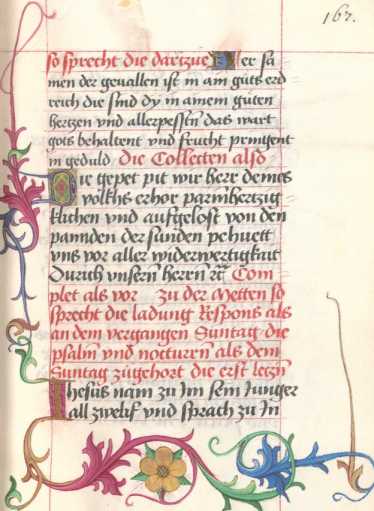 167.
so sprecht die dartzue Der sa
men der geuallen ist in am guts erd
reich die sind dy in ainem guten
hertzen vnd allerpesstn das wart
gots behaltent vnd frucht pringent
in geduld Die Collecten also
Die gepet pit wir herr deines
volkhs erhor parmhertzig
klichen vnd aufgelost von den
pannden der sunden pehuett
vns vor aller widerwertigkait
Durich vnsern herrn Com
plet als vor zu der Metten so
sprecht die ladung Respons als
an dem vergangen Suntag die
psalm vnd nocturen als dem
Suntag zugehort die erst leczn
Ihesus nam zu Im sein Iunger
all zwelif vnd sprach zu In